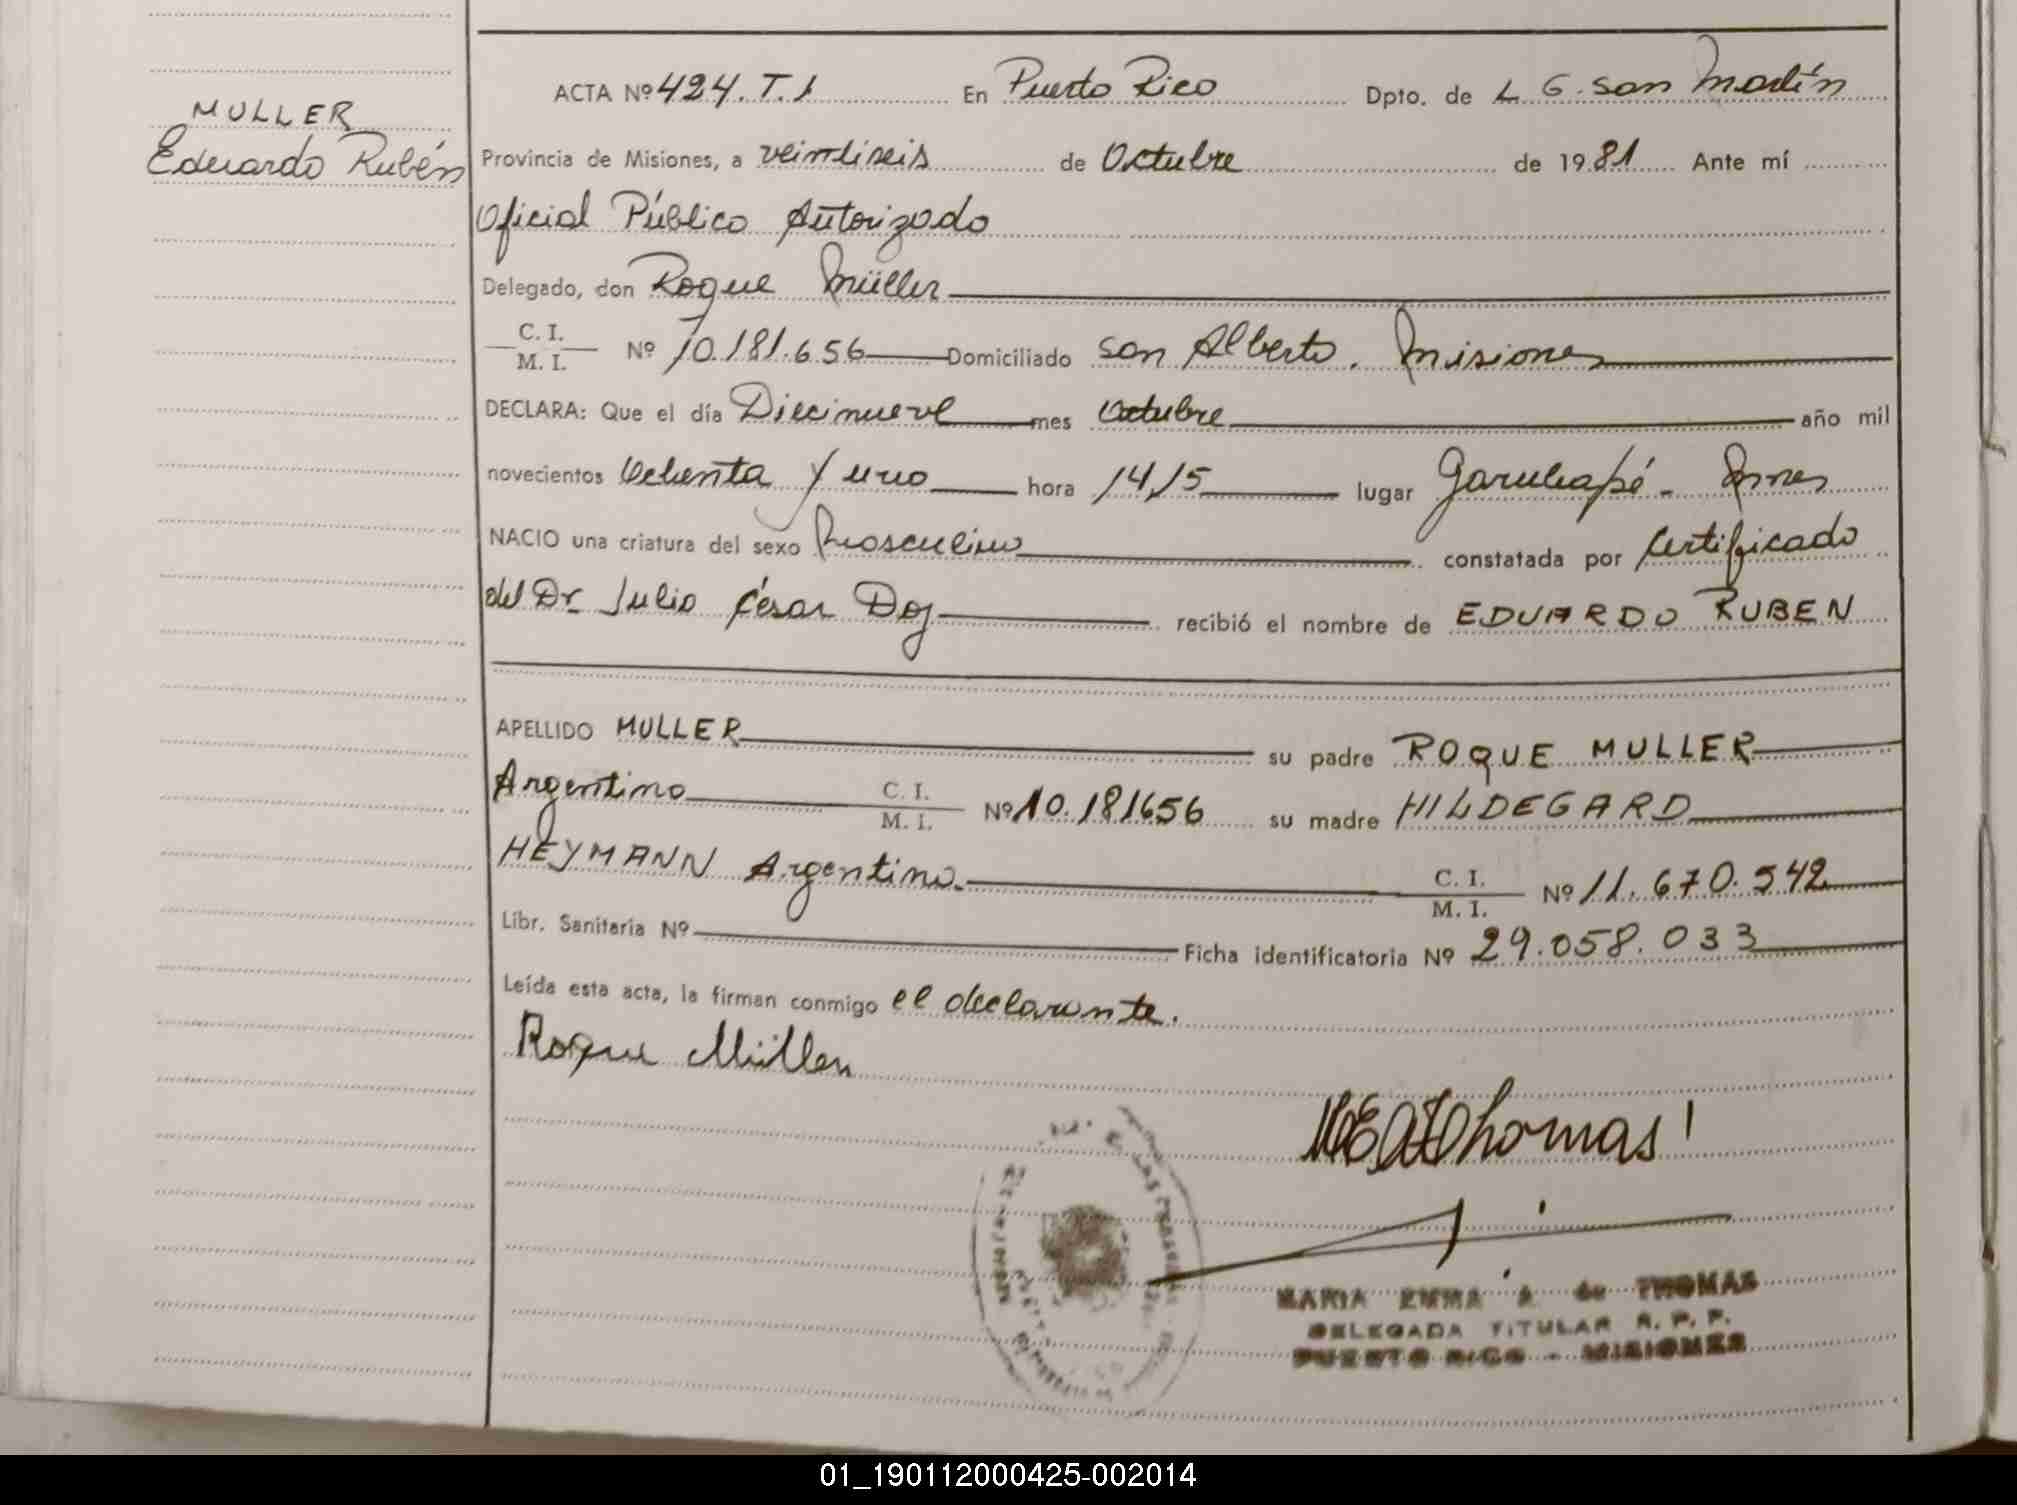 MULLER
Eduardo Rubén
ACTA Nº 424. T. 1 En Puerto Rico Dpto. de L. G. San Martín
Provincia de Misiones, a veintiseis de Octubre de 1981 Ante mí
Oficial Público Autorizado
Delegado, don Roque Müller
C. I.
M. I. Nº 10.181.656 Domiciliado San Alberto. Misiones
DECLARA: Que el día Diecinueve mes Octubre año mil
novecientos Ochenta y uno hora 14,15 lugar Garuhapé - Mnes
NACIO una criatura del sexo Masculino constatada por Certificado
del Dr. Julio César Doj recibió el nombre de EDUARDO RUBEN
APELLIDO MULLER su padre ROQUE MULLER
Argentino C. I.
M. I. Nº 10.181656 su madre HILDEGARD
HEYMANN Argentina. C. I.
M. I. Nº 11.670.542
Libr. Sanitaria Nº Ficha identificatoria Nº 29.058.033
Leída esta acta, la firman conmigo el declarante.
Roque Müller
MEAThomas
MARIA EMMA A. de THOMAS
DELEGADA TITULAR R. P. P.
PUERTO RICO - MISIONES
01_190112000425-002014